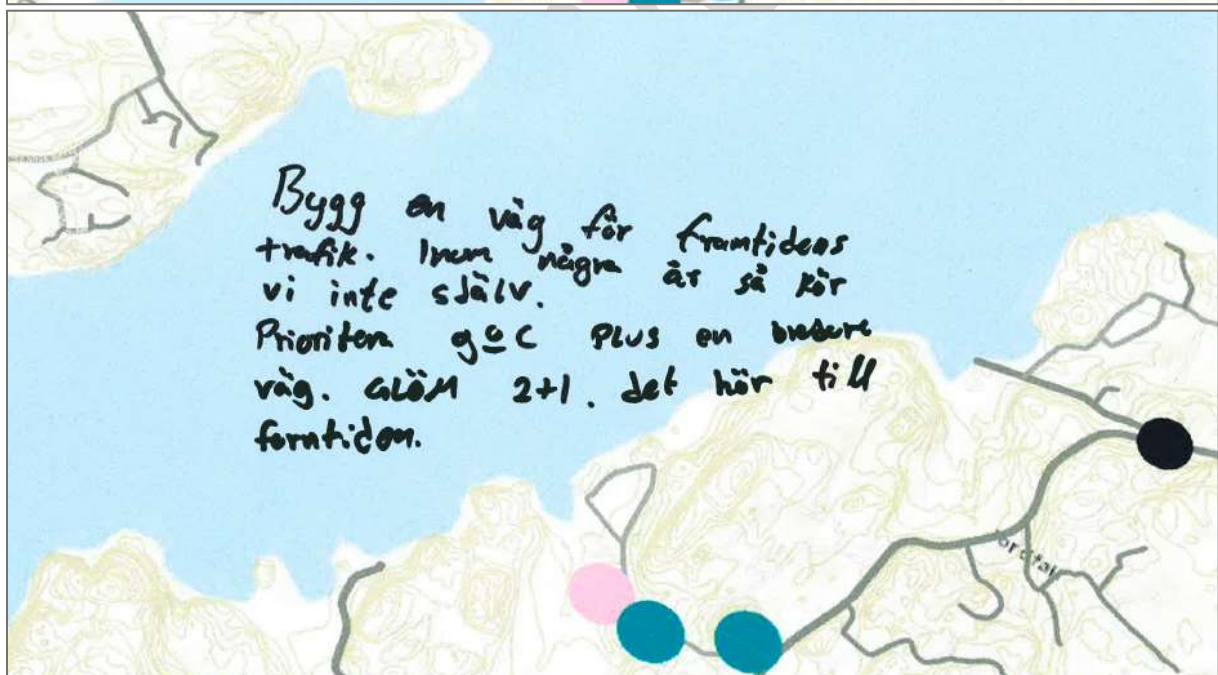 Bygg en väg för framtidens
trafik. Inom några år så kör
vi inte själv.
Prioritera goc PLUS en bredare
väg. GLÖM 2+1. det hör till
forntiden.